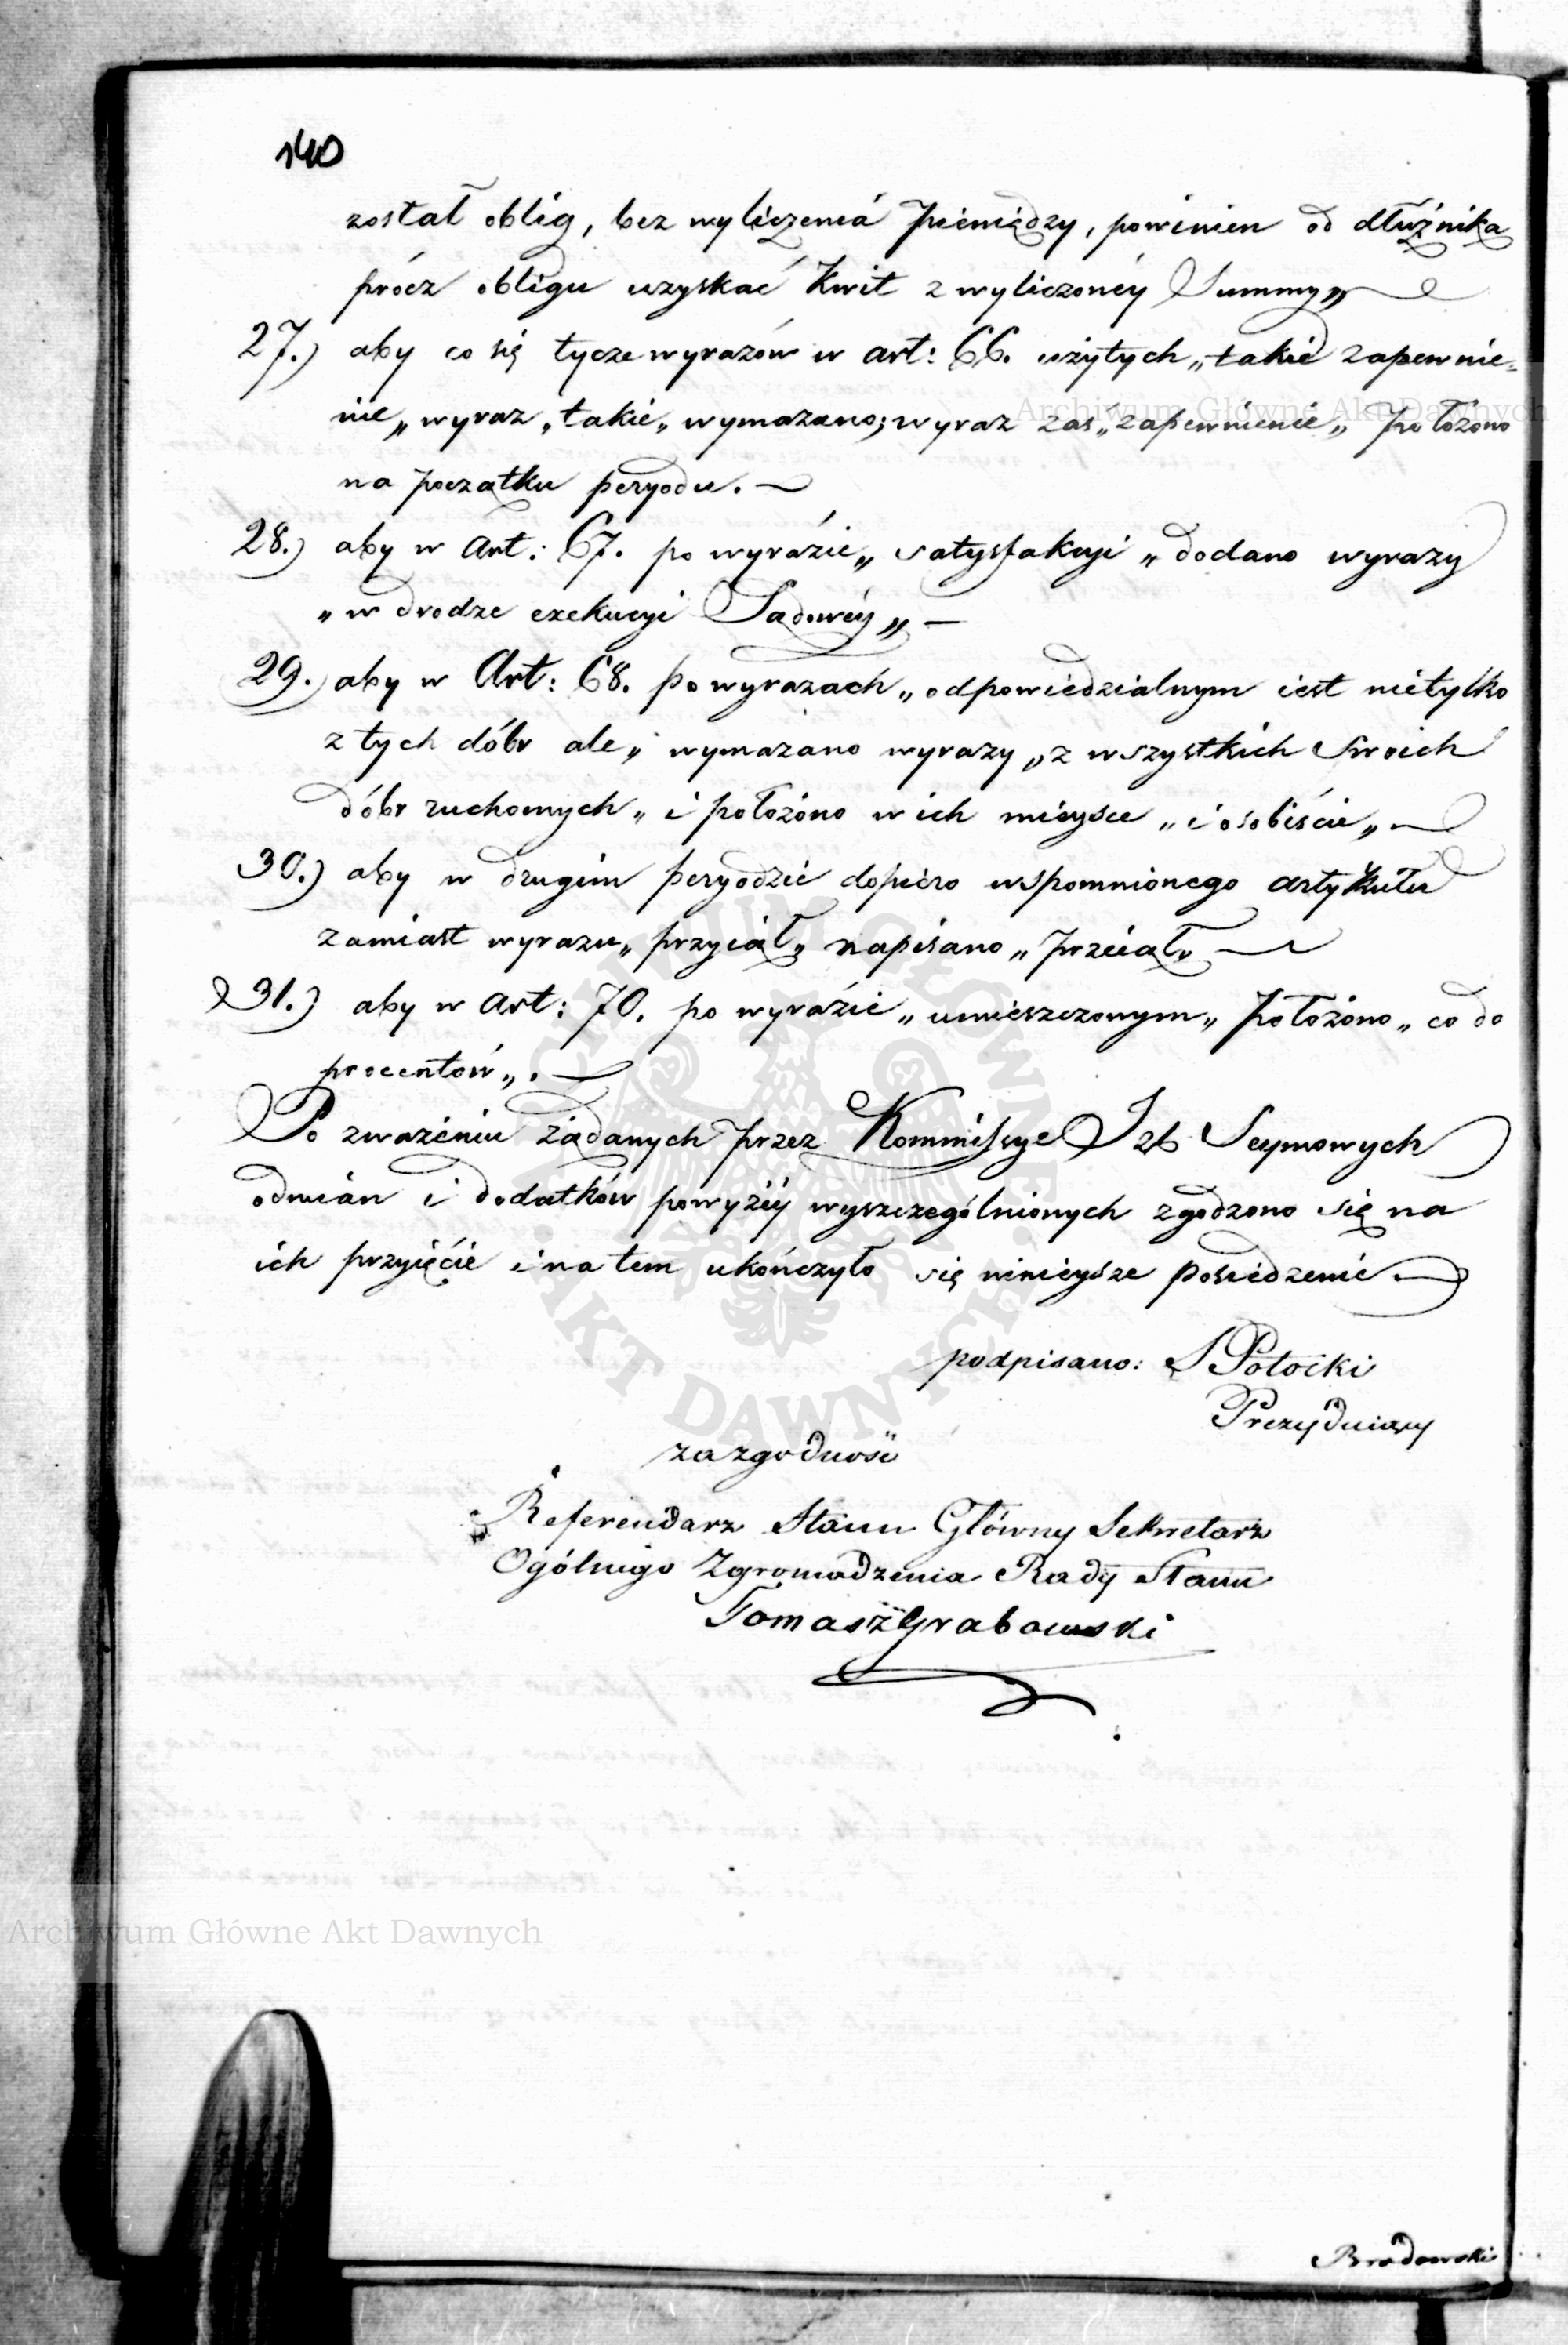 140
został oblig, bez wyliczenia pieniędzy, powinien od dłużnika
prócz obligu uzyskać kwit z wyliczonéy Summy„
27.) aby co się tycze wyrazów w art: 66. użytych „takie zapewnie=
nie„ wyraz „takie„ wymazano; wyraz zaś „zapewnienie„ położono
na początku peryodu.
28.) aby w Art: 67. po wyrazie „satysfakcyi„ dodano wyrazy
„w drodze exekucyi Sądowéy„
29.) aby w Art: 68. po wyrazach „odpowiedzialnym iest nietylko
z tych dóbr ale„ wymazano wyrazy „z wszystkich swoich
dóbr ruchomych„ i położono w ich mieysce „i osobiście„
30.) aby w drugim peryodzie dopiero wspomnionego artykułu
zamiast wyrazu „przyiął„ napisano „przeiął„
31.) aby w Art: 70. po wyrazie „umieszczonym„ położono „co do
procentów„.
Po zważeniu żądanych przez Kommissye Izb Seymowych
odmian i dodatków powyżéy wyszczególnionych zgodzono się na
ich przyięcie i na tem ukończyło się ninieysze posiedzenie
podpisano: S Potocki
Prezyduiący
za zgodność
Referendarz Stanu Główny Sekretarz
Ogólnego Zgromadzenia Rady Stanu
Tomasz Grabowski
Brodowski
Archiwum Główne Akt Dawnych
Archiwum Główne Akt Dawnych
ARCHIWUM GŁÓWNE
AKT DAWNYCH